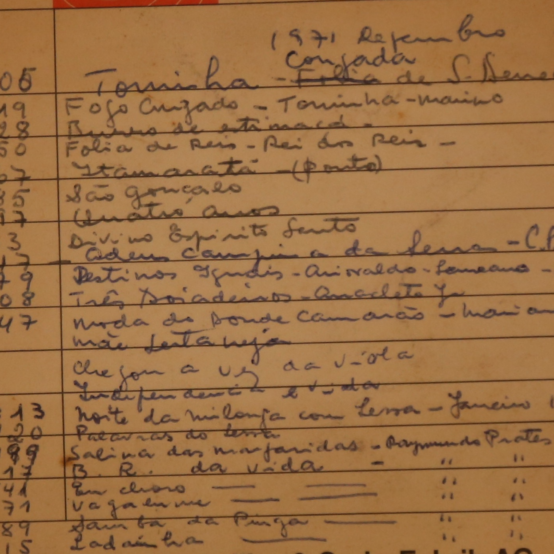 1971 Dezembro
Congada
05 Toninha - Folia de S. Bene
19 Fogo Cruzado - Toninha - Marino
28 Burro de estimacã -
50 Folia de Reis - Rei dos Reis -
67 Itamaratá - (Ponto)
85 São Gonçalo
97 Quatro anos
3 Divino Espirito Santo
Adeus Campina da Serra - C.
79 Destinos Iguais - Ariovaldo -
08 Três Boiadeiros - Anacleto Jr
47 Moda do Bonde Camarão - Marian
Mãe Sertaneja
Chegou a vez da viola
Independencia e vida
13 Noite da milonga com Lessa - Janeiro
20 Palavras do Lessa
99 Salina das Margaridas - Raymundo Prates
B. R. da Vida - " "
41 Em choro — — " "
71 Vagalume — — " "
89 Samba da Pinga — " "
15 Ladainha —